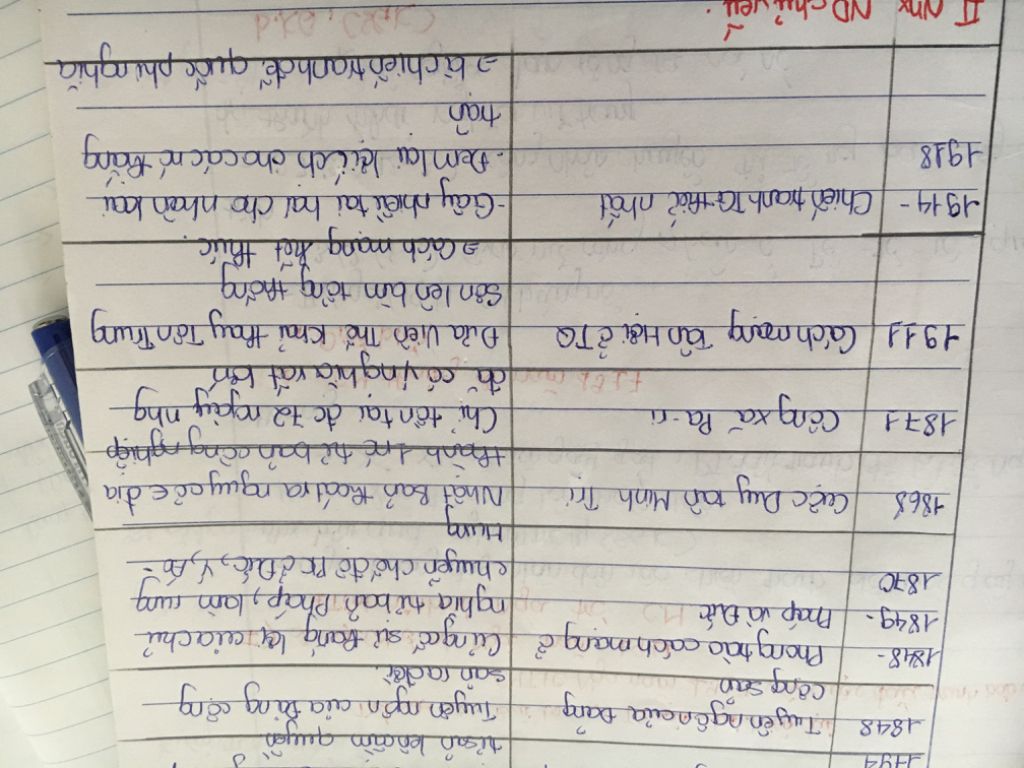 1794
tư sản lên cầm quyền
1848 Tuyên ngôn của Đảng Tuyên ngôn của Đảng cộng
cộng sản sản ra đời.
1848- Phong trào cách mạng ở Củng cố sự thắng lợi của chủ
1849- Pháp và Đức nghĩa tư bản Pháp, làm rung
1870 chuyển chế độ PK ở Đức, Ý, Áo -
Hung
1868 Cuộc Duy tân Minh Trị Nhật Bản thoát ra nguy cơ là địa
thành 1 nc tư bản công nghiệp
1871 Công xã Pa-ri Chỉ tồn tại đc 72 ngày nhg
đã có ý nghĩa rất lớn
1911 Cách mạng Tân Hợi ở TQ Đưa Viên Thế Khải thay Tôn Trung
Sơn lên làm tổng thống
→ cách mạng kết thúc.
1914- Chiến tranh TG thứ nhất - Gây nhiều tai hại cho nhân loại
1918 - Đem lại lợi ích cho các nc thắng
trận
→ là chiến tranh đế quốc phi nghĩa
II Nhx ND chủ yếu.